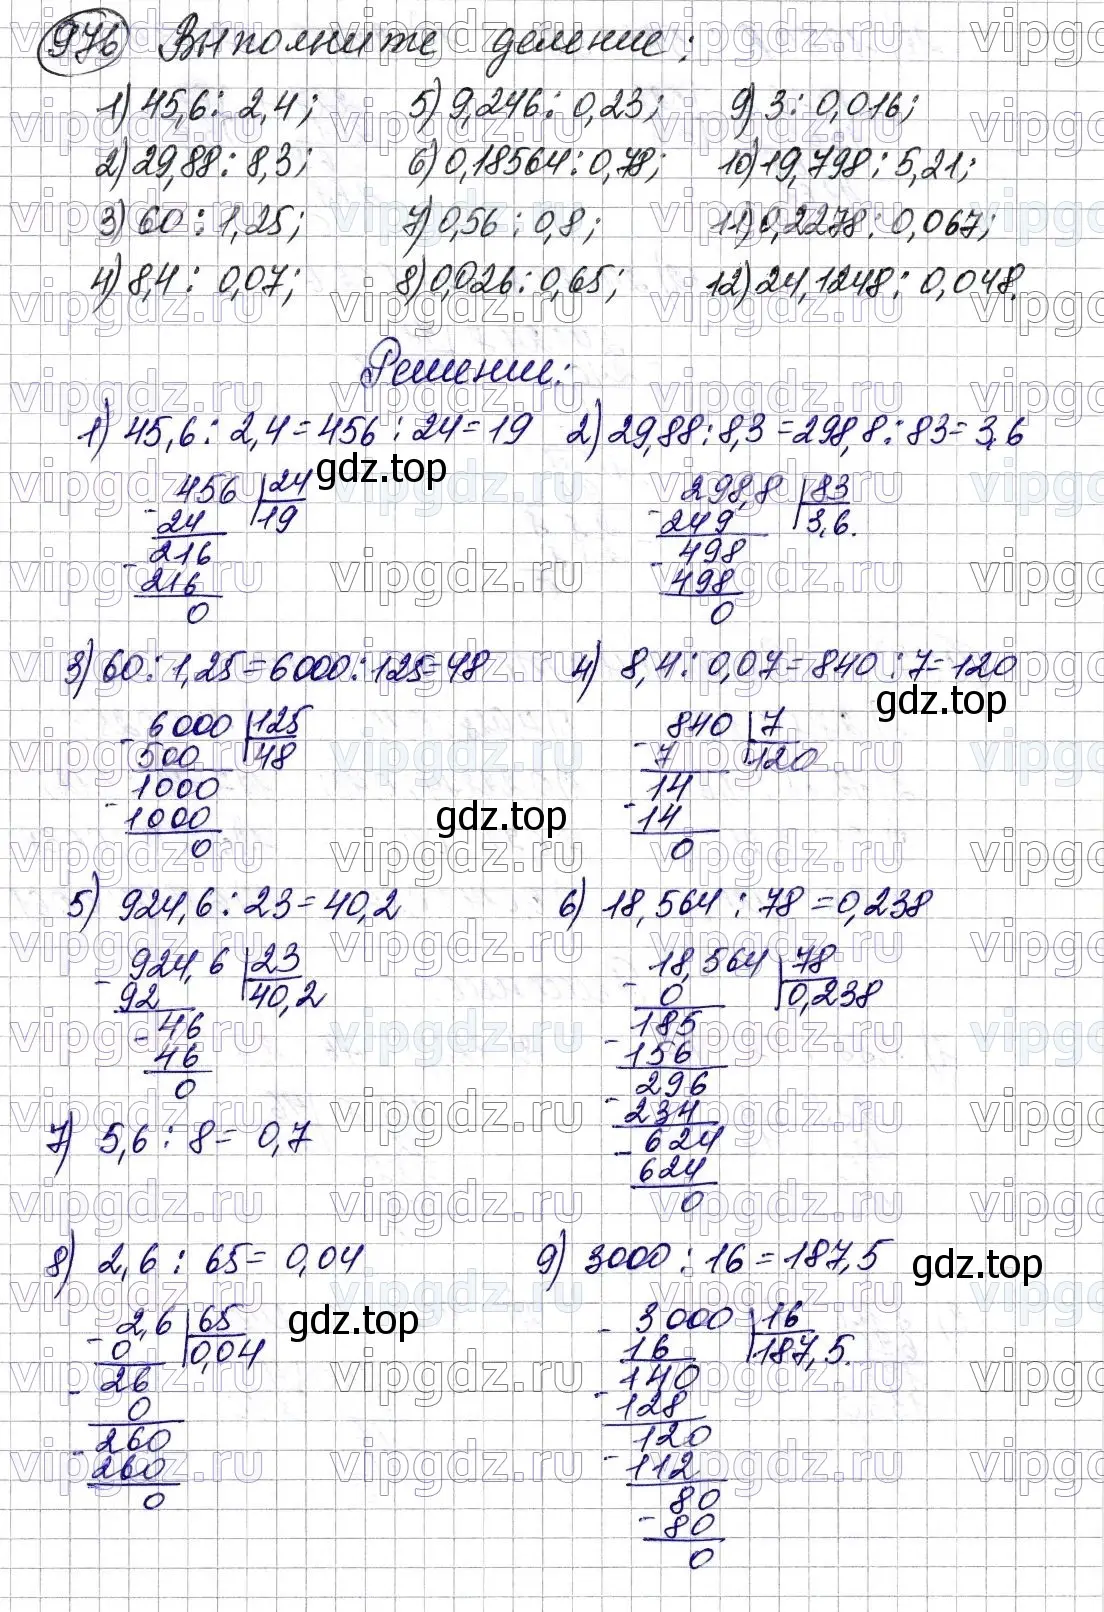 976 Выполните деление:
1) 45,6 : 2,4; 5) 9,246 : 0,23; 9) 3 : 0,016;
2) 29,88 : 8,3; 6) 0,18564 : 0,78; 10) 19,798 : 5,21;
3) 60 : 1,25; 7) 0,56 : 0,8; 11) 0,2278 : 0,067;
4) 8,4 : 0,07; 8) 0,026 : 0,65; 12) 24,1248 : 0,048.
Решение:
1) 45,6 : 2,4 = 456 : 24 = 19 2) 29,88 : 8,3 = 298,8 : 83 = 3,6
gdz.top
456 24 298,8 83
- 24 19 - 249 3,6.
216 498
- 216 - 498
0 0
3) 60 : 1,25 = 6000 : 125 = 48 4) 8,4 : 0,07 = 840 : 7 = 120
gdz.top
- 6000 125 - 840 7
500 48 7 120
1000 14
- 1000 - 14
0 0
gdz.top
5) 924,6 : 23 = 40,2 6) 18,564 : 78 = 0,238
- 924,6 23 - 18,564 78
92 40,2 0 0,238
- 46 185
46 - 156
0 296
- 234
7) 5,6 : 8 = 0,7 - 624
624
0
8) 2,6 : 65 = 0,04 9) 3000 : 16 = 187,5
gdz.top
gdz.top
- 2,6 65 - 3000 16
0 0,04 16 187,5.
- 26 140
0 - 128
- 260 120
260 - 112
0 80
- 80
0
vipgdz.ru